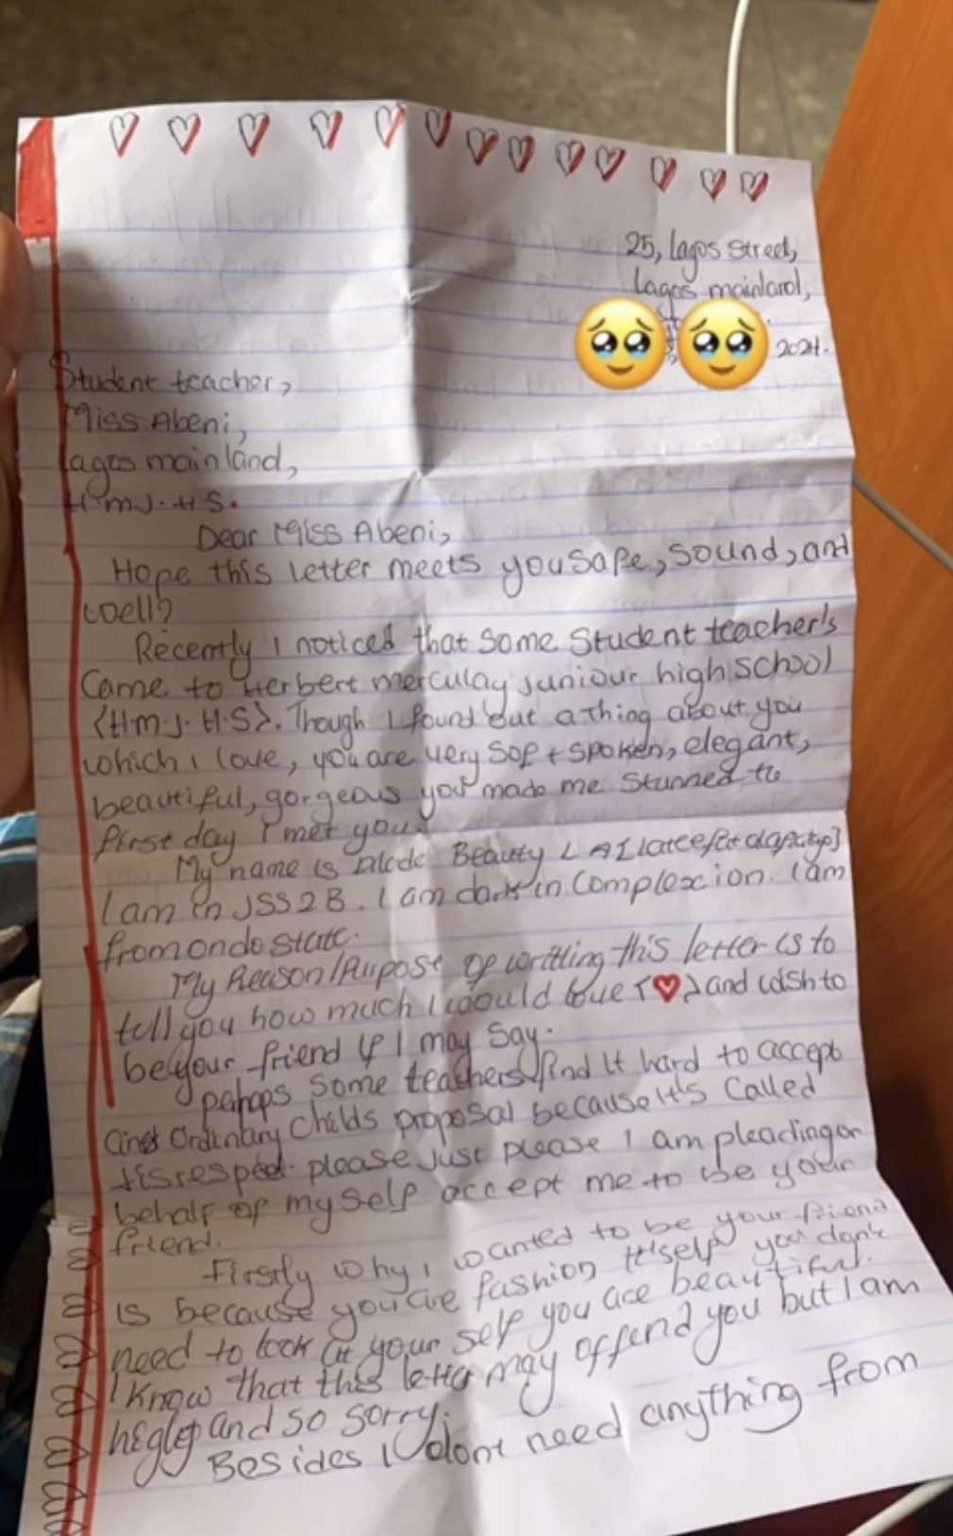 25, Lagos Street,
Lagos mainland,
2024.
Student teacher,
Miss Abeni,
Lagos mainland,
H.M.J.H.S.
Dear Miss Abeni,
Hope this letter meets you safe, sound, and
well?
Recently I noticed that some Student teacher's
Came to Herbert merculay juniour high school
{H.M.J.H.S}. Though I found out a thing about you
which I love, you are very soft spoken, elegant,
beautiful, gorgeous you made me stunned to
first day I met you.
My name is Beauty
I am in JSS2B. I am dark in Complexion. I am
from ondo state.
My Reason/Purpose of writting this letter is to
tell you how much I would love {❤} and wish to
be your friend if I may Say.
pehaps Some teachers find It hard to accept
Ordinary Childs proposal because It's Called
disrespect. please just please I am pleading on
behalf of my self accept me to be your
friend.
Firstly why I wanted to be your friend
is because you are fashion It'self you don't
need to look at your self you are beautiful.
I know that this letter may offend you but I am
and so sorry.
Besides I dont need anything from